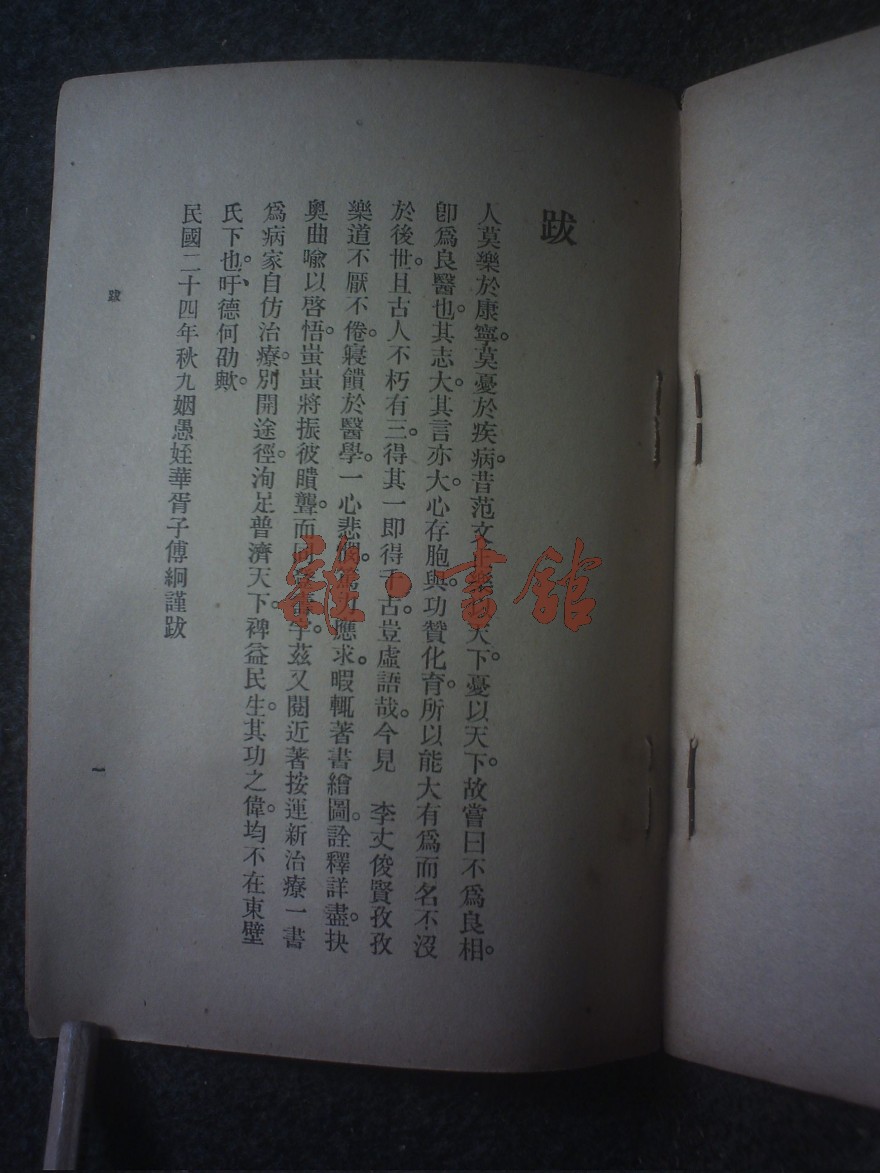 跋
人莫樂於康寧。莫憂於疾病。昔范文正樂以天下。憂以天下。故嘗曰不爲良相。
卽爲良醫也。其志大。其言亦大。心存胞與。功贊化育。所以能大有爲而名不沒
於後世。且古人不朽有三。得其一即得千古。豈虛語哉。今見 李丈俊賢孜孜
樂道不厭不倦。寢饋於醫學。一心悲憫。應求。暇輒著書繪圖。詮釋詳盡。抉
奧曲喩以啓悟。蚩蚩將振彼聵聾。而同字茲又閱近著按運新治療一書
爲病家自仿治療。別開途徑。洵足普濟天下。裨益民生。其功之偉。均不在東壁
氏下也。吁、德何劭歟。
民國二十四年秋九姻愚姪華胥子傅絅謹跋
跋
一
雜·書館